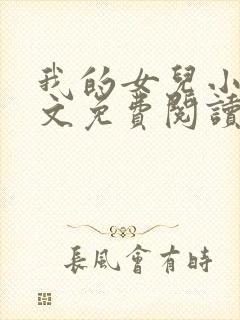 我的女兒小
文免費閱讀
長風會有時